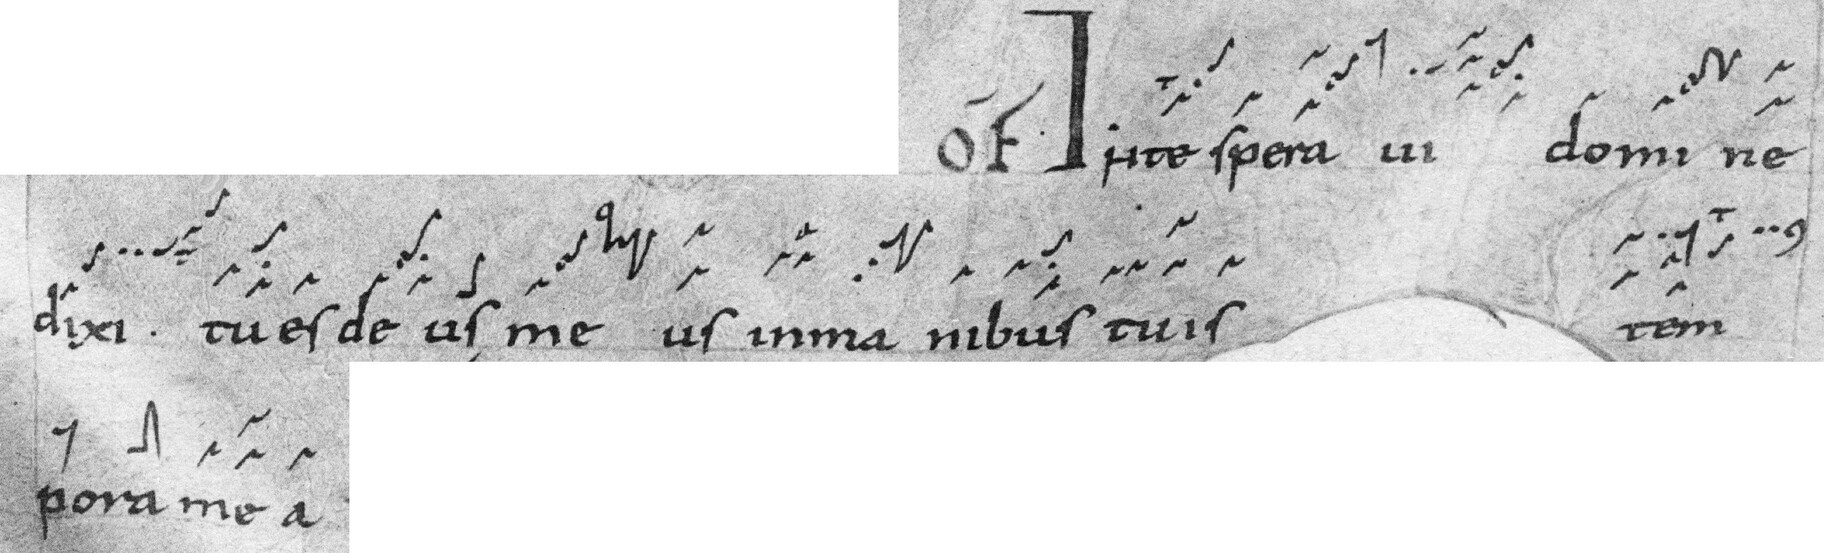 of Inte spera ui domi ne
dixi . tu es de us me us inma nibus tuis tem
pora me a